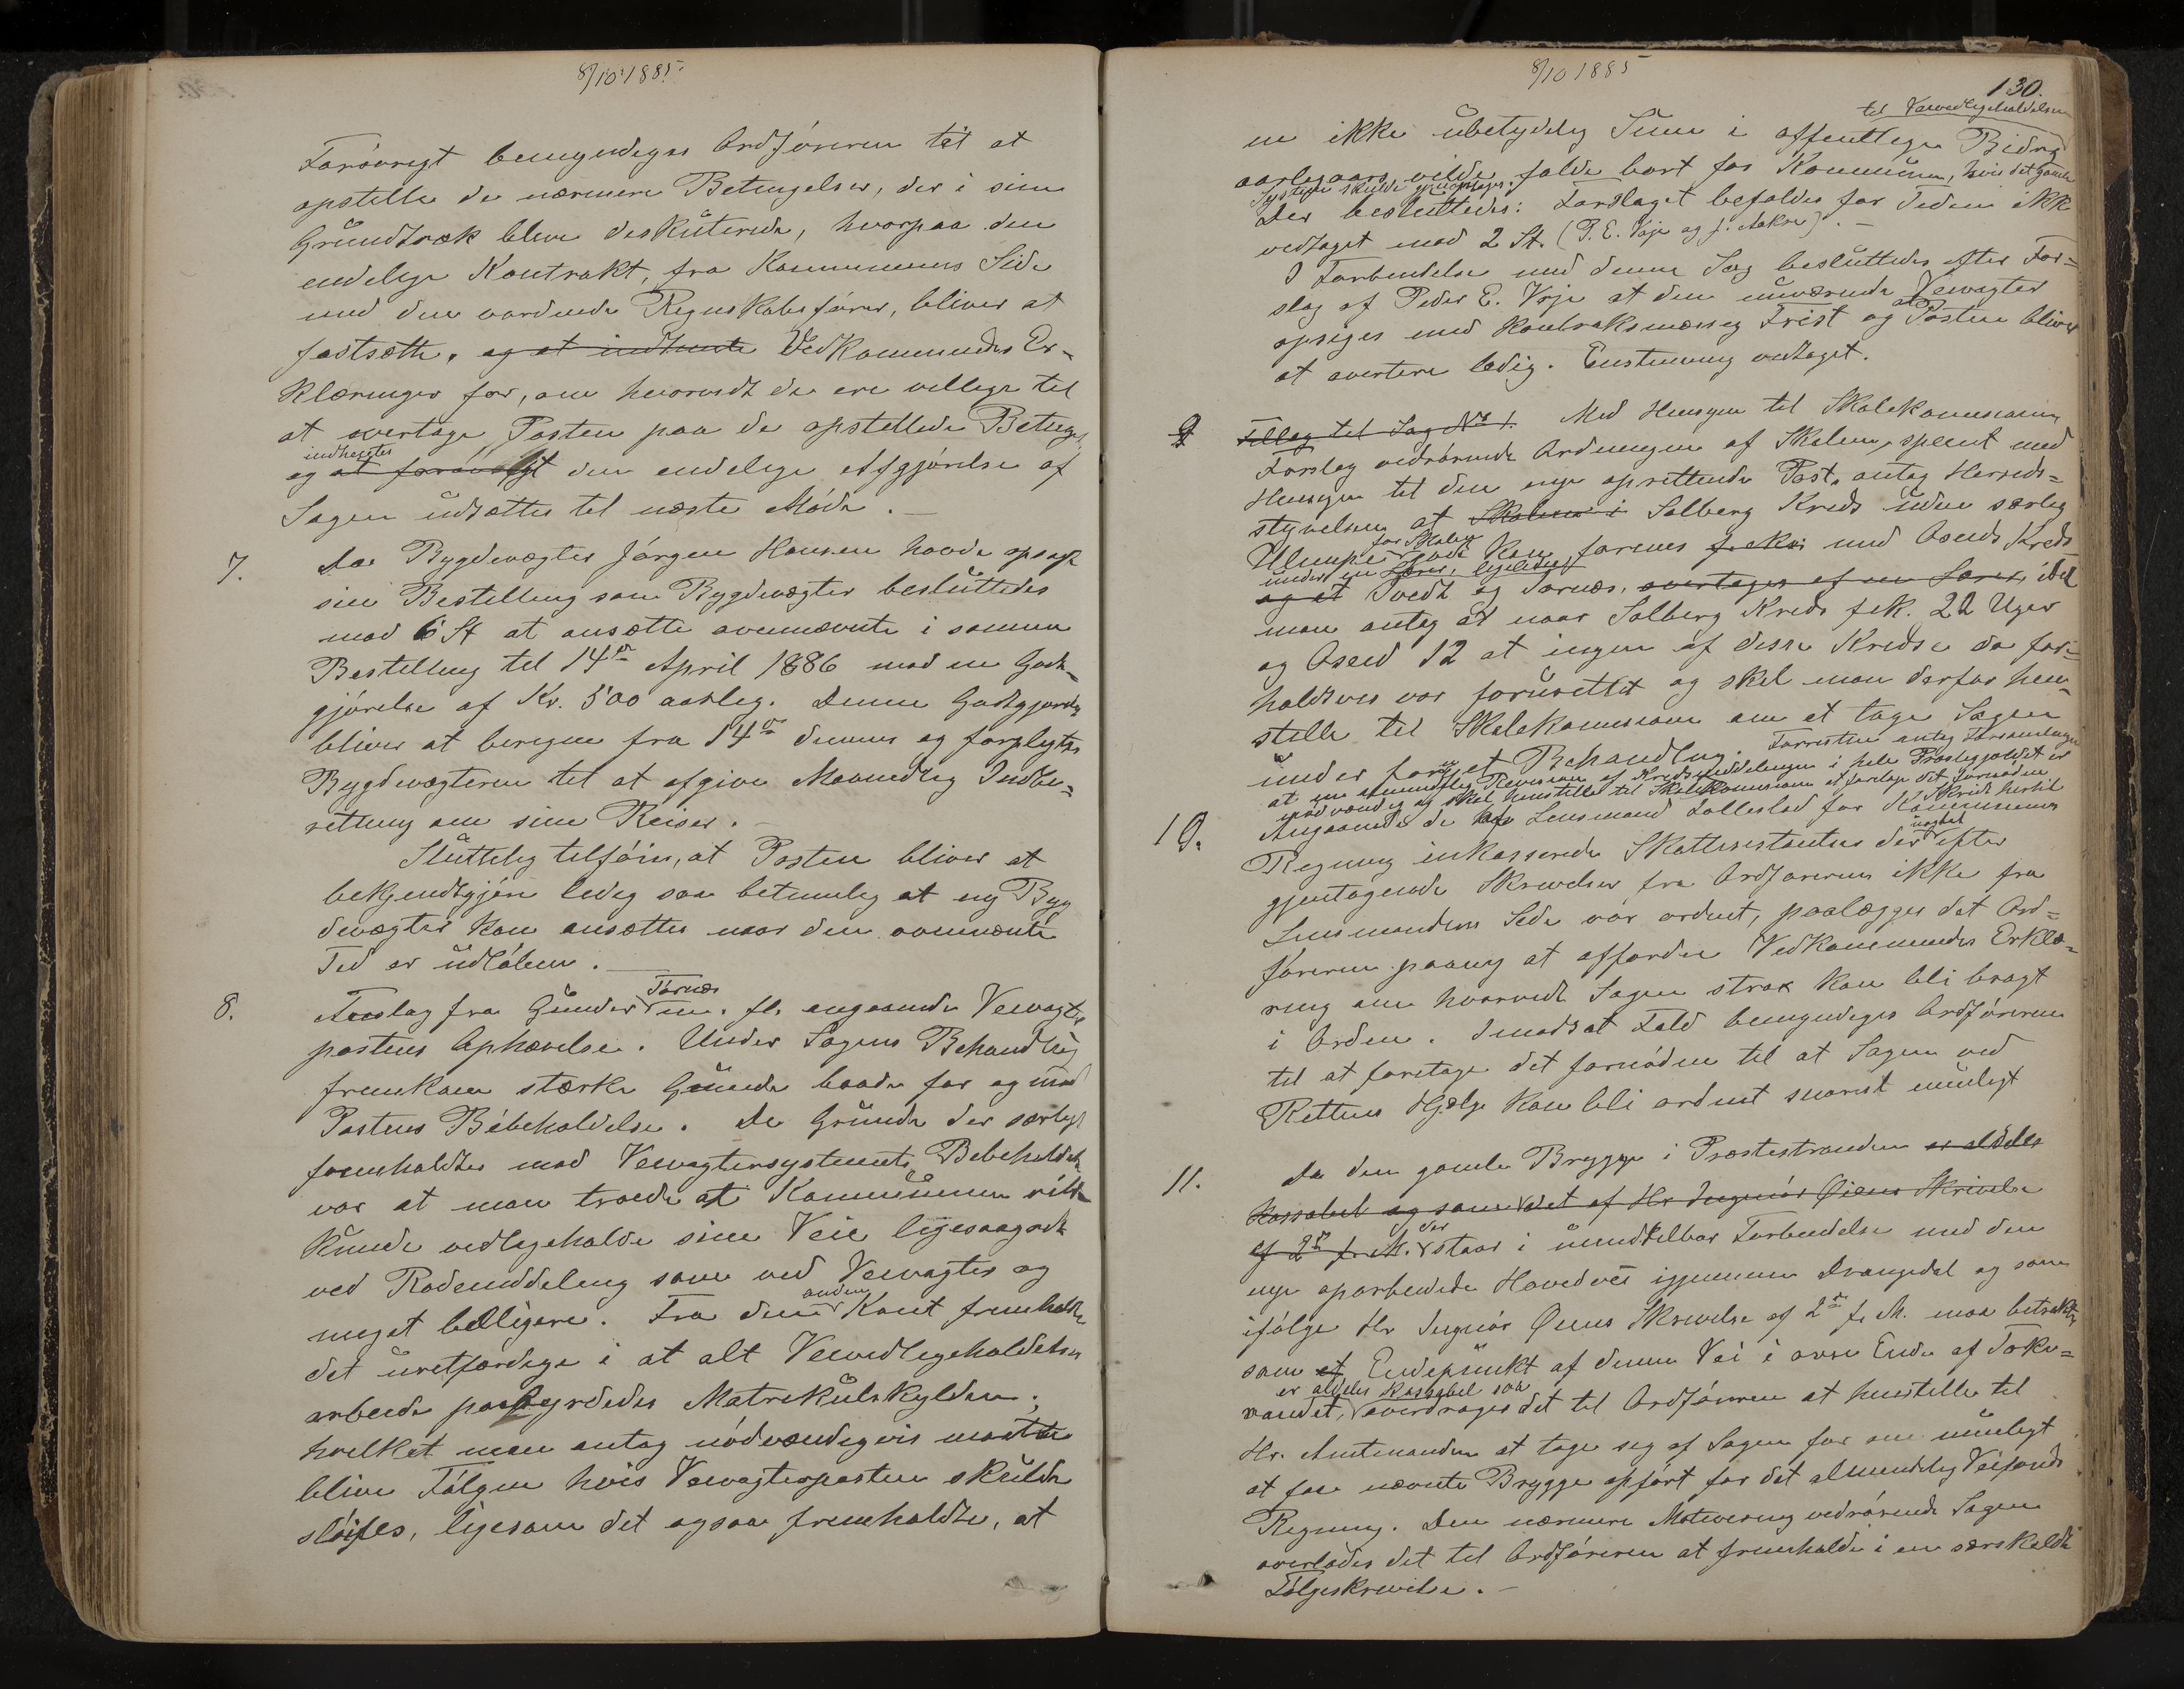 8/10 1885.
Forøvrigt bemyndiges Ordføreren til at
opstille de nærmere Betingelser, der i sine
Grundtræk bleve diskuterede, hvorpaa den
endelige Kontrakt, fra Kommunens Side
med den vordende Regnskabsfører, bliver at
fastsætte, og at indhente Vedkommendes Er-
klæringer for, om hvorvidt de ere villige til
at overtage Posten paa de opstillede Beting.
indhentes
og at forøvrigt den endelige Afgjørelse af
Sagen udsættes til næste Møde.
7. Da Bygdevægter Jørgen Hansen havde opsagt
sin Bestilling som Bygdevægter besluttedes
mod 6 St at ansætte ovennævnte i samme
Bestilling til 14de April 1886 mod en Godt-
gjørelse af Kr. 500 aarlig. Denne Godtgjørelse
bliver at beregne fra 14de dennes og forpligtes
Bygdevægteren til at afgive Maanedlig Indbe-
retning om sine Reiser.
Sluttelig tilføies, at Posten bliver at
bekjendtgjøre ledig saa betimelig at ny Byg
devægter kan ansættes naar den ovennævnte
Tid er udløben.
Tørnes
8. Andrag fra Gunder m. fl. angaaende Veivogter
postens Ophævelse. Under Sagens Behandling
fremkom stærke Grunde baade for og mod
Postens Bibeholdelse. De Grunde der særligt
fremholdtes mod Veivogtersystemets Bibeholdelse
var at man troede at Kommunen vilde
kunde vedligeholde sine Veie ligesaagodt
ved Rodeinddeling som ved Veivogter og
anden
meget billigere. Fra den Kant fremholdtes
det uretfærdige i at alt Veivedligeholdelses
arbeide paabyrdedes Matrikulskylden,
hvilket man antog nødvendigvis maatte
blive Følgen hvis Veivogterposten skulde
sløifes, ligesom det ogsaa fremholdtes, at
8/10 1885
130.
til Veivedligeholdelsen
en ikke ubetydelig Sum i offentlige Bidrag
aarligaars vilde falde bort for Kommunen, hvis det gamle
Systemet skulde gjenoptages.
Der besluttedes: Forslaget befaldes for Tiden ikke
vedtaget mod 2 St. (P. E. Voje og J. Aakre).
I Forbindelse med denne Sag besluttedes efter For-
slag af Peder E. Voje at den nuværende Veivogter
opsiges med kontraktsmæssig Frist og at Posten bliver
at avertere ledig. Enstemmig vedtaget.
9 Tillæg til Sag No 1. Med Hensyn til Skolekommissionens
Forslag vedrørende Ordningen af Skolen, specielt med
Hensyn til den nye oprettende Post, antog Herreds-
styrelsen at Skolen i Solberg Kreds uden særlig
for Skolen
Ulempe godt kan forenes f. eks. med Aasens Kreds
under en Lærer, ligeledes
og et Tvedt og Tørnæs, overtages af en Lærer, idet
man antog at naar Solberg Kreds fik 22 Uger
og Aasen 12 at ingen af disse Kredse da for-
holdsvis var forurettet og skal man derfor hen-
stille til Skolekommissionen om at tage Sagen
under fornyet Behandling. Forresten antog Forsamlingen
at en almindelig Revision af Kredsinddelingen i hele Præstegjeldet er
nødvendig og skal henstille til Skolekommissionen at foretage det fornødne
Skridt hertil
10. Angaaende de af Lensmand Tollefslad for Kommunens
noget
Regning inkasserede Skatterestantser der efter
gjentagende Skrivelser fra Ordføreren ikke fra
Lensmandens Side var ordnet, paalægges det Ord-
føreren paany at affordre Vedkommendes Erklæ-
ring om hvorvidt Sagen strax kan bli bragt
i Orden. I modsat Fald bemyndiges Ordføreren
til at foretage det fornødne til at Sagen ved
Rettens Hjælp kan bli ordnet snarest muligt
11. Da den gamle Brygge i Præstestranden er aldeles
kassabel og som det af Hr Ingeniør Øiens Skrivelse
der
af 2de f. M. staar i umiddelbar Forbindelse med den
nye oparbeidede Hovedvei igjennem Drangedal og som
ifølge Hr Ingeniør Øiens Skrivelse af 2de f. M. maa betragtes
som et Endepunkt af denne Vei i øvre Ende af Toke-
er aldeles kassabel saa
vandet, overdrages det til Ordføreren at henstille til
Hr. Amtmanden at tage sig af Sagen for om muligt
at faa nævnte Brygge opført for det almindelig Veifonds
Regning. Den nærmere Motivering vedrørende Sagen
overlades det til Ordføreren at fremholde i en særskildt
Følgeskrivelse.